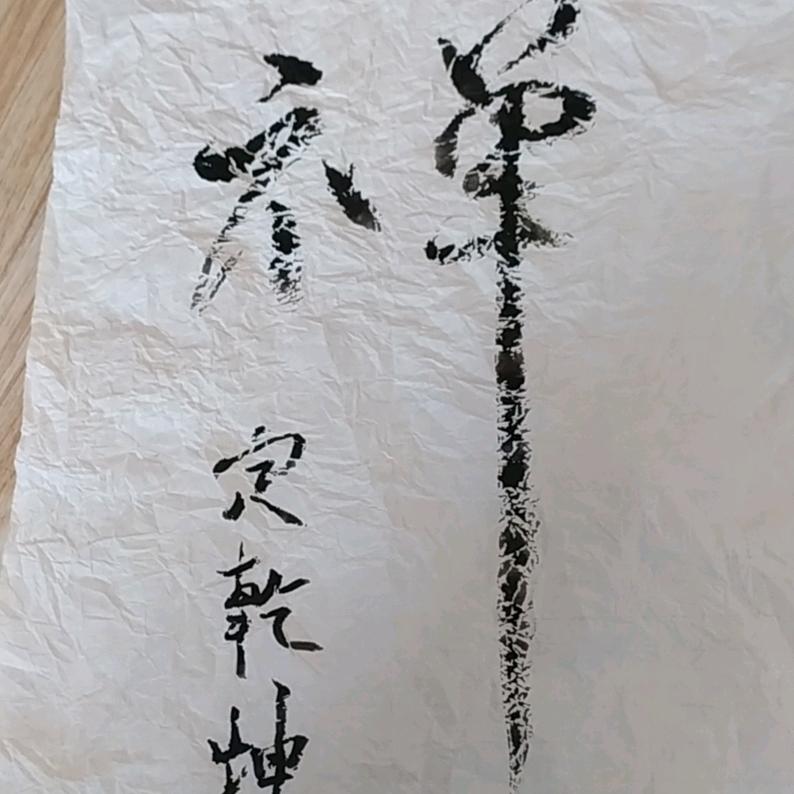 禅
定乾坤